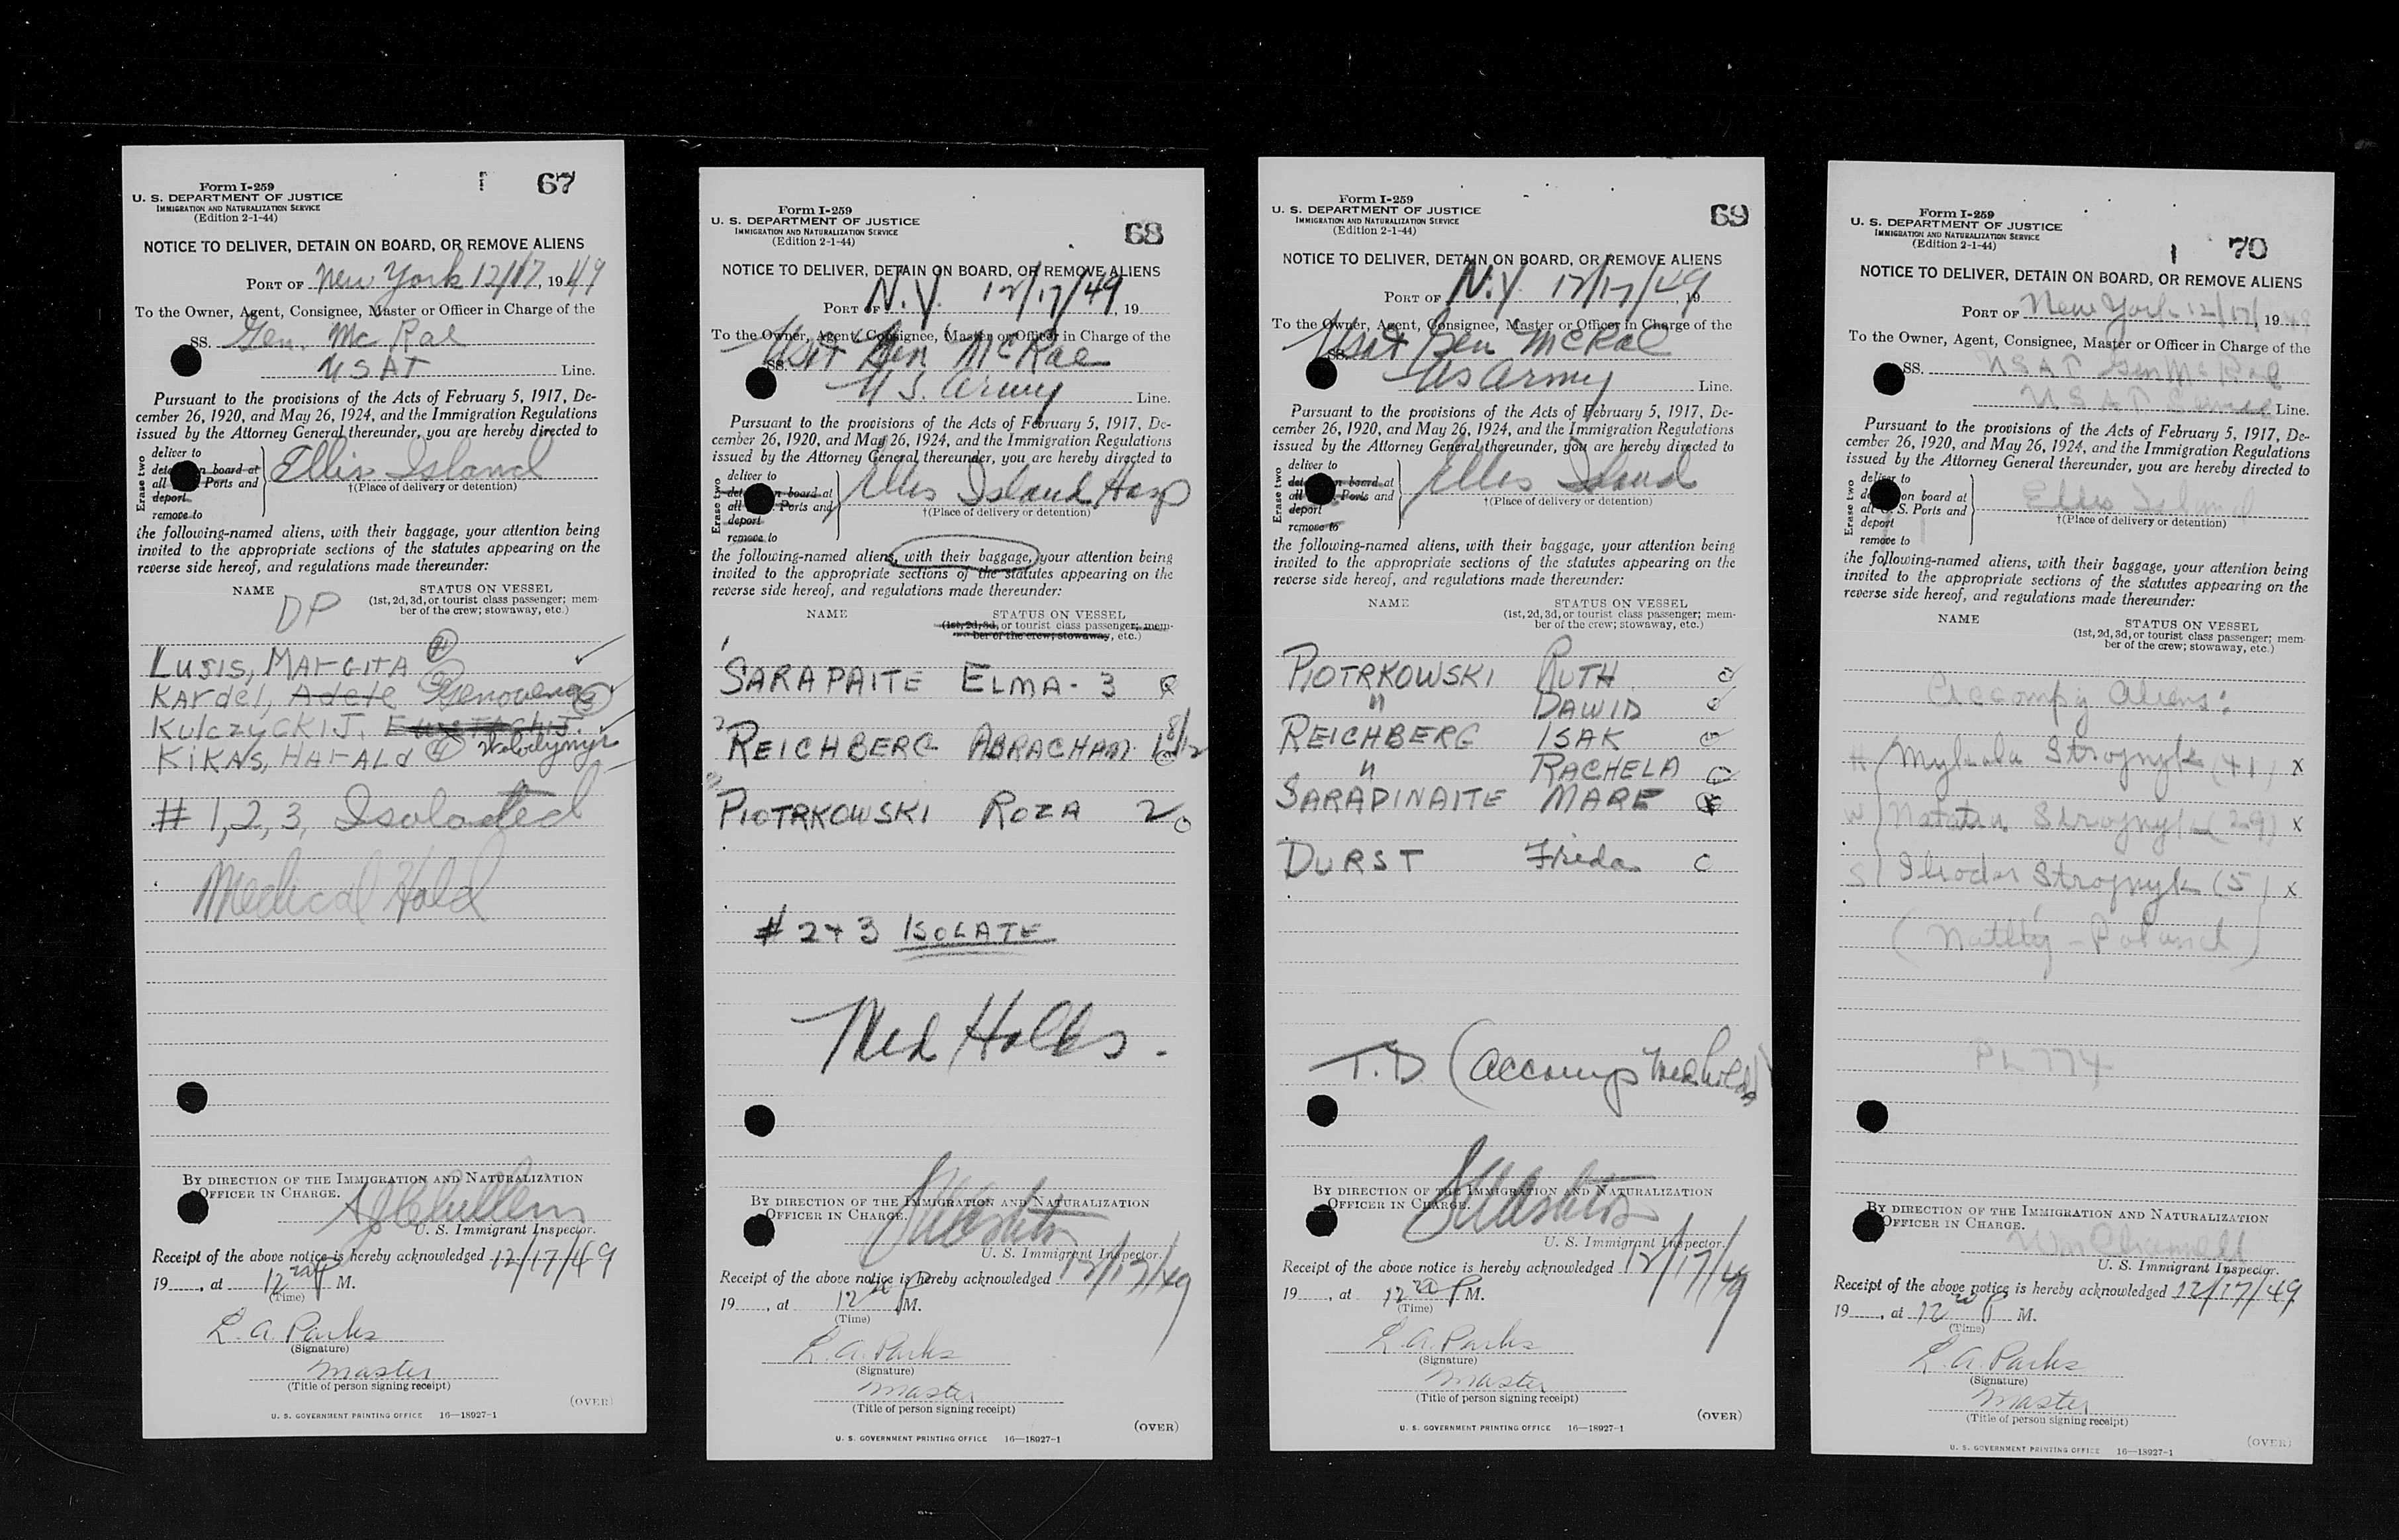 67
Form I-259
U. S. DEPARTMENT OF JUSTICE
IMMIGRATION AND NATURALIZATION SERVICE
(Edition 2-1-44)
NOTICE TO DELIVER, DETAIN ON BOARD, OR REMOVE ALIENS
PORT OF New York 12/17, 1949
To the Owner, Agent, Consignee, Master or Officer in Charge of the
SS. Gen. Mc Rae
USAT Line.
Pursuant to the provisions of the Acts of February 5, 1917, De-
cember 26, 1920, and May 26, 1924, and the Immigration Regulations
issued by the Attorney General thereunder, you are hereby directed to
Erase two
deliver to
n board at
all Ports and
deport
remove to
Ellis Island
†(Place of delivery or detention)
the following-named aliens, with their baggage, your attention being
invited to the appropriate sections of the statutes appearing on the
reverse side hereof, and regulations made thereunder:
NAME STATUS ON VESSEL
(1st, 2d, 3d, or tourist class passenger; mem-
ber of the crew; stowaway, etc.)
DP
LUSIS, MARGITA
Kardel, Adele Genowena
KULCZYCKIJ,
KIKAS, HARALd Wolodymyr
# 1, 2, 3, Isolated
Medical Hold
BY DIRECTION OF THE IMMIGRATION AND NATURALIZATION
OFFICER IN CHARGE.
U. S. Immigrant Inspector.
Receipt of the above notice is hereby acknowledged 12/17/49
19, at 12 P M.
(Time)
L. A. Parks
(Signature)
Master
(Title of person signing receipt)
(OVER)
U. S. GOVERNMENT PRINTING OFFICE 16—18927-1
68
Form I-259
U. S. DEPARTMENT OF JUSTICE
IMMIGRATION AND NATURALIZATION SERVICE
(Edition 2-1-44)
NOTICE TO DELIVER, DETAIN ON BOARD, OR REMOVE ALIENS
PORT OF N.Y. 12/17/49, 19
To the Owner, Agent, Consignee, Master or Officer in Charge of the
SS. Usat Gen McRae
U S. Army Line.
Pursuant to the provisions of the Acts of February 5, 1917, De-
cember 26, 1920, and May 26, 1924, and the Immigration Regulations
issued by the Attorney General thereunder, you are hereby directed to
Erase two
deliver to
n board at
all Ports and
deport
remove to
Ellis Island Hosp
†(Place of delivery or detention)
the following-named aliens, with their baggage, your attention being
invited to the appropriate sections of the statutes appearing on the
reverse side hereof, and regulations made thereunder:
NAME STATUS ON VESSEL
(1st, 2d, 3d, or tourist class passenger; mem-
ber of the crew; stowaway, etc.)
1 SARAPAITE ELMA - 3
2 REICHBERG ABRACHAM 1 8/12
3 PIOTRKOWSKI ROZA 2
# 2 + 3 ISOLATE
Med Holds.
BY DIRECTION OF THE IMMIGRATION AND NATURALIZATION
OFFICER IN CHARGE.
U. S. Immigrant Inspector.
Receipt of the above notice is hereby acknowledged 12/17/49
19, at 12 P M.
(Time)
L. A. Parks
(Signature)
Master
(Title of person signing receipt)
(OVER)
U. S. GOVERNMENT PRINTING OFFICE 16—18927-1
69
Form I-259
U. S. DEPARTMENT OF JUSTICE
IMMIGRATION AND NATURALIZATION SERVICE
(Edition 2-1-44)
NOTICE TO DELIVER, DETAIN ON BOARD, OR REMOVE ALIENS
PORT OF N.Y. 12/17/49, 19
To the Owner, Agent, Consignee, Master or Officer in Charge of the
SS. Usat Gen McRae
US Army Line.
Pursuant to the provisions of the Acts of February 5, 1917, De-
cember 26, 1920, and May 26, 1924, and the Immigration Regulations
issued by the Attorney General thereunder, you are hereby directed to
Erase two
deliver to
n board at
all Ports and
deport
remove to
Ellis Island
†(Place of delivery or detention)
the following-named aliens, with their baggage, your attention being
invited to the appropriate sections of the statutes appearing on the
reverse side hereof, and regulations made thereunder:
NAME STATUS ON VESSEL
(1st, 2d, 3d, or tourist class passenger; mem-
ber of the crew; stowaway, etc.)
PIOTRKOWSKI RUTH
" DAWID
REICHBERG ISAK
" RACHELA
SARAPINAITE MARE
DURST Frieda
T.D. (accomp med holds)
BY DIRECTION OF THE IMMIGRATION AND NATURALIZATION
OFFICER IN CHARGE.
U. S. Immigrant Inspector.
Receipt of the above notice is hereby acknowledged 12/17/49
19, at 12 P M.
(Time)
L. A. Parks
(Signature)
Master
(Title of person signing receipt)
(OVER)
U. S. GOVERNMENT PRINTING OFFICE 16—18927-1
70
Form I-259
U. S. DEPARTMENT OF JUSTICE
IMMIGRATION AND NATURALIZATION SERVICE
(Edition 2-1-44)
NOTICE TO DELIVER, DETAIN ON BOARD, OR REMOVE ALIENS
PORT OF New York 12/17/, 1949
To the Owner, Agent, Consignee, Master or Officer in Charge of the
SS. USAT Gen Mc Rae
USAT Line.
Pursuant to the provisions of the Acts of February 5, 1917, De-
cember 26, 1920, and May 26, 1924, and the Immigration Regulations
issued by the Attorney General thereunder, you are hereby directed to
Erase two
deliver to
on board at
all S. Ports and
deport
remove to
Ellis Island
†(Place of delivery or detention)
the following-named aliens, with their baggage, your attention being
invited to the appropriate sections of the statutes appearing on the
reverse side hereof, and regulations made thereunder:
NAME STATUS ON VESSEL
(1st, 2d, 3d, or tourist class passenger; mem-
ber of the crew; stowaway, etc.)
Accompg Aliens:
H Mykola Strojnyk (41) x
W Natalia Strojnyk (29) x
S Ihodar Strojnyk (5) x
(Natlty - Poland)
PL 774
BY DIRECTION OF THE IMMIGRATION AND NATURALIZATION
OFFICER IN CHARGE.
U. S. Immigrant Inspector.
Receipt of the above notice is hereby acknowledged 12/17/49
19, at 12 P M.
(Time)
L. A. Parks
(Signature)
Master
(Title of person signing receipt)
(OVER)
U. S. GOVERNMENT PRINTING OFFICE 16—18927-1